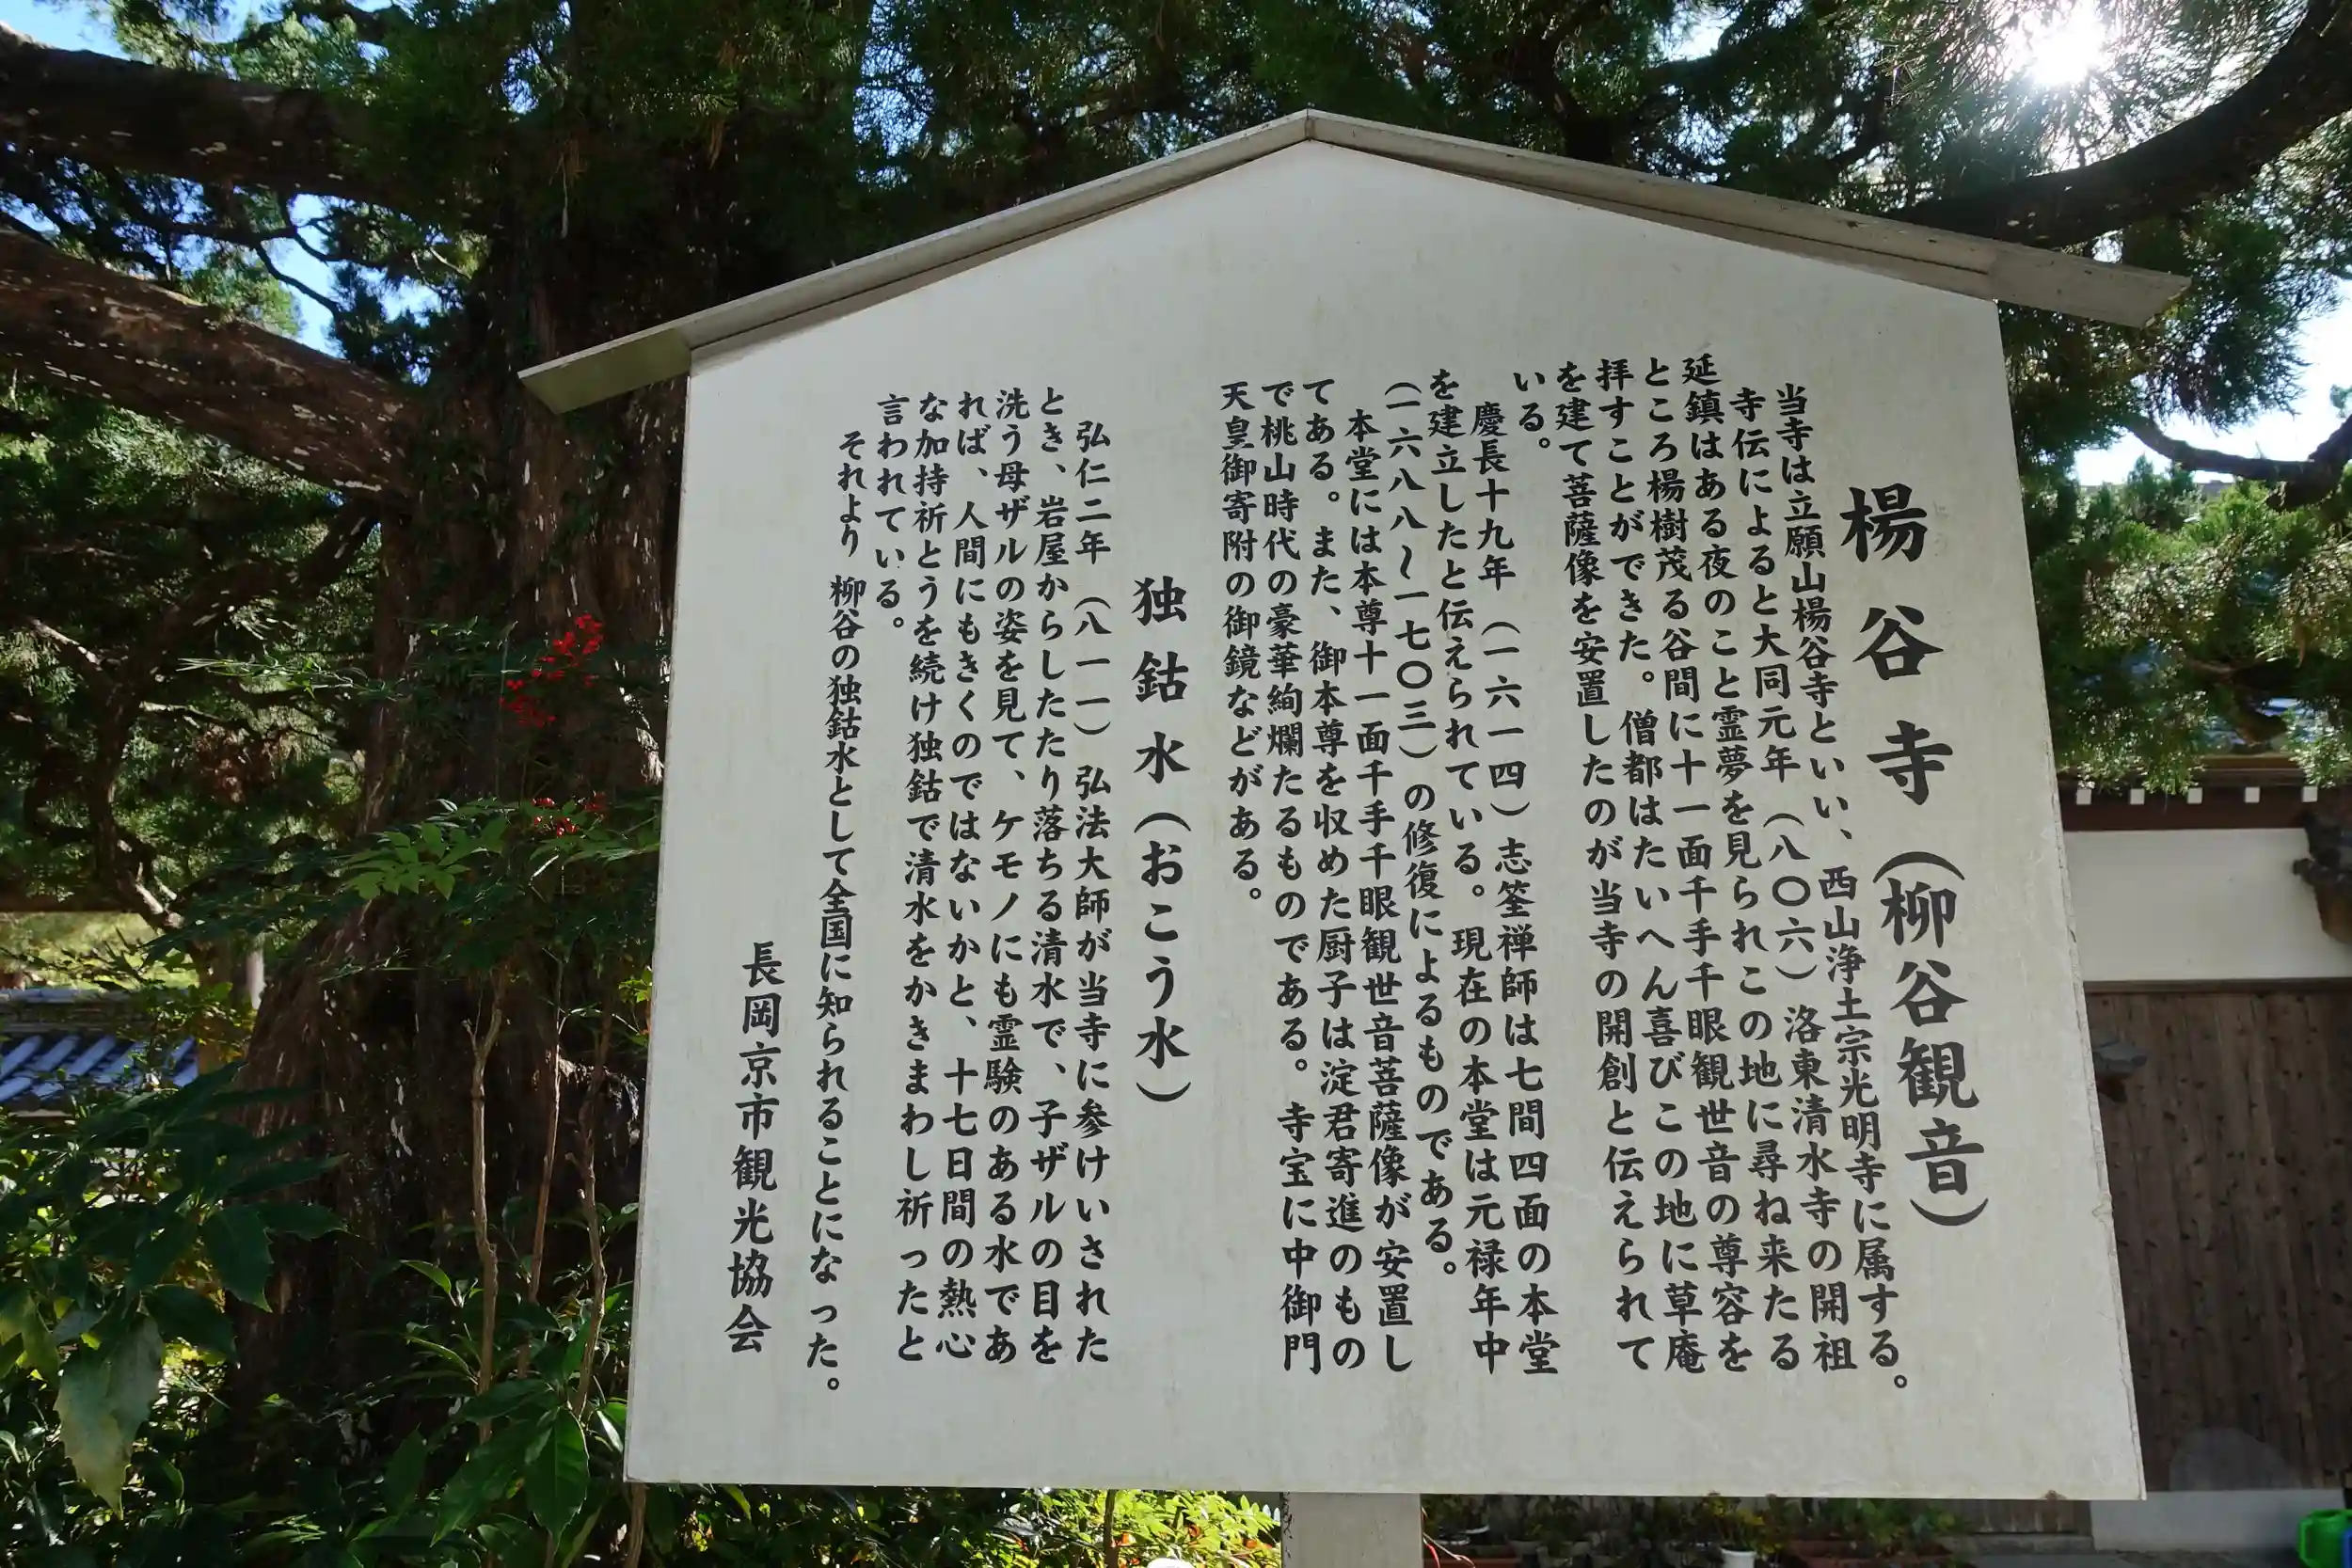 楊谷寺（柳谷観音）
当寺は立願山楊谷寺といい、西山浄土宗光明寺に属する。
寺伝によると大同元年（八〇六）洛東清水寺の開祖
延鎮はある夜のこと霊夢を見られこの地に尋ね来たる
ところ楊樹茂る谷間に十一面千手千眼観世音の尊容を
拝すことができた。僧都はたいへん喜びこの地に草庵
を建て菩薩像を安置したのが当寺の開創と伝えられて
いる。
慶長十九年（一六一四）志筌禅師は七間四面の本堂
を建立したと伝えられている。現在の本堂は元禄年中
（一六八八〜一七〇三）の修復によるものである。
本堂には本尊十一面千手千眼観世音菩薩像が安置し
てある。また、御本尊を収めた厨子は淀君寄進のもの
で桃山時代の豪華絢爛たるものである。寺宝に中御門
天皇御寄附の御鏡などがある。
独鈷水（おこう水）
弘仁二年（八一一）弘法大師が当寺に参けいされた
とき、岩屋からしたたり落ちる清水で、子ザルの目を
洗う母ザルの姿を見て、ケモノにも霊験のある水であ
れば、人間にもきくのではないかと、十七日間の熱心
な加持祈とうを続け独鈷で清水をかきまわし祈ったと
言われている。
それより柳谷の独鈷水として全国に知られることになった。
長岡京市観光協会